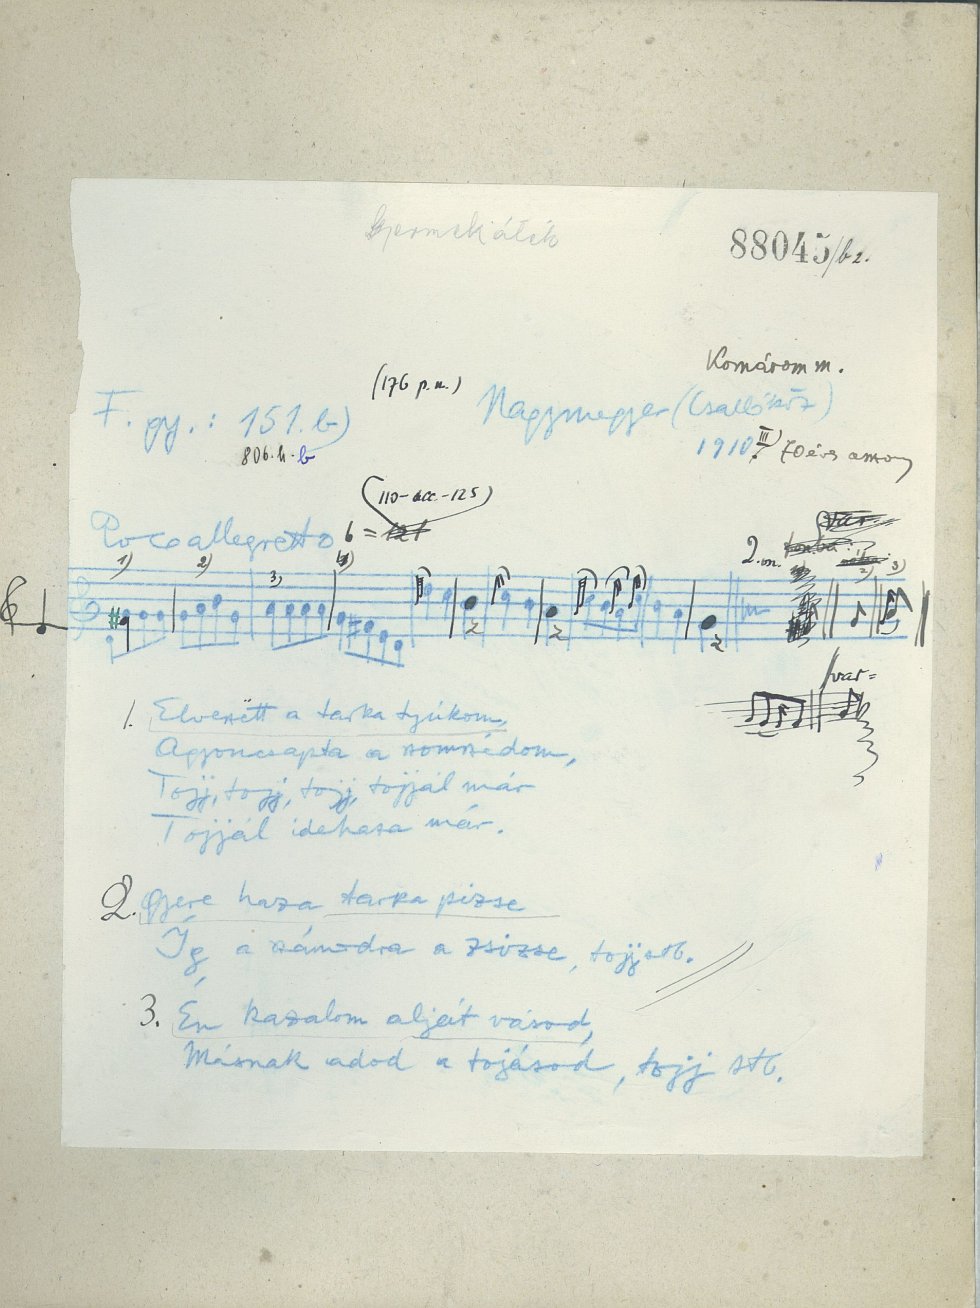 Gyermekjáték
88045/b2.
Komárom m.
(176 p.u.)
F. gy.: 151. b) Nagymegyer (Csallóköz)
806.h.b 1910. III) 70 éves asszony
(110-acc.-125)
Poco allegretto
1) 2) 3) 2. m. 2) 3)
var.
1. Elveszett a tarka tyúkom,
Agyoncsapta a szomszédom,
Tojj, tojj, tojj, tojjál már
Tojjál idehaza már.
2. Gyere haza tarka pizse
Ég a számodra a zsizse, tojj stb.
3. Én kazalom alját vásod,
Másnak adod a tojásod, tojj stb.